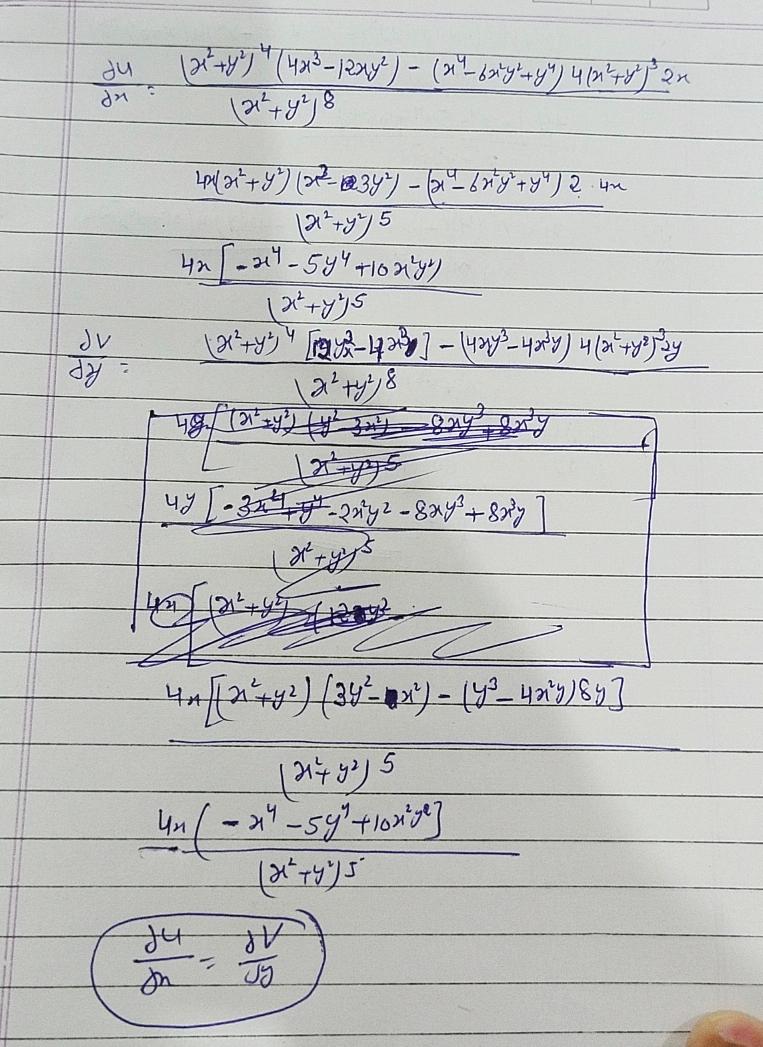 ∂u/∂x = (x²+y²)⁴ (4x³-12xy²) - (x⁴-6x²y²+y⁴) 4(x²+y²)³ 2x / (x²+y²)⁸
4x(x²+y²) (x²-3y²) - (x⁴-6x²y²+y⁴) 2 · 4x / (x²+y²)5
4x [-x⁴ - 5y⁴ +10x²y²) / (x²+y²)5
∂V/∂y = (x²+y²)⁴ [12y²x-4x³] - (4xy³-4x³y) 4(x²+y²)³ 2y / (x²+y²)8
4y [(x²+y²) (y²-3x²) - 8xy³+8x³y / (x²+y²)5
4y [-3x⁴+y⁴-2x²y² - 8xy³ + 8x³y] / (x²+y²)5
4x [(x²+y²)
4x[(x²+y²) (3y²-x²) - (y³-4x²y)8y] / (x²+y²) 5
4x ( - x⁴ - 5y⁴ +10x²y²] / (x²+y²)5
∂u/∂x = ∂V/∂y